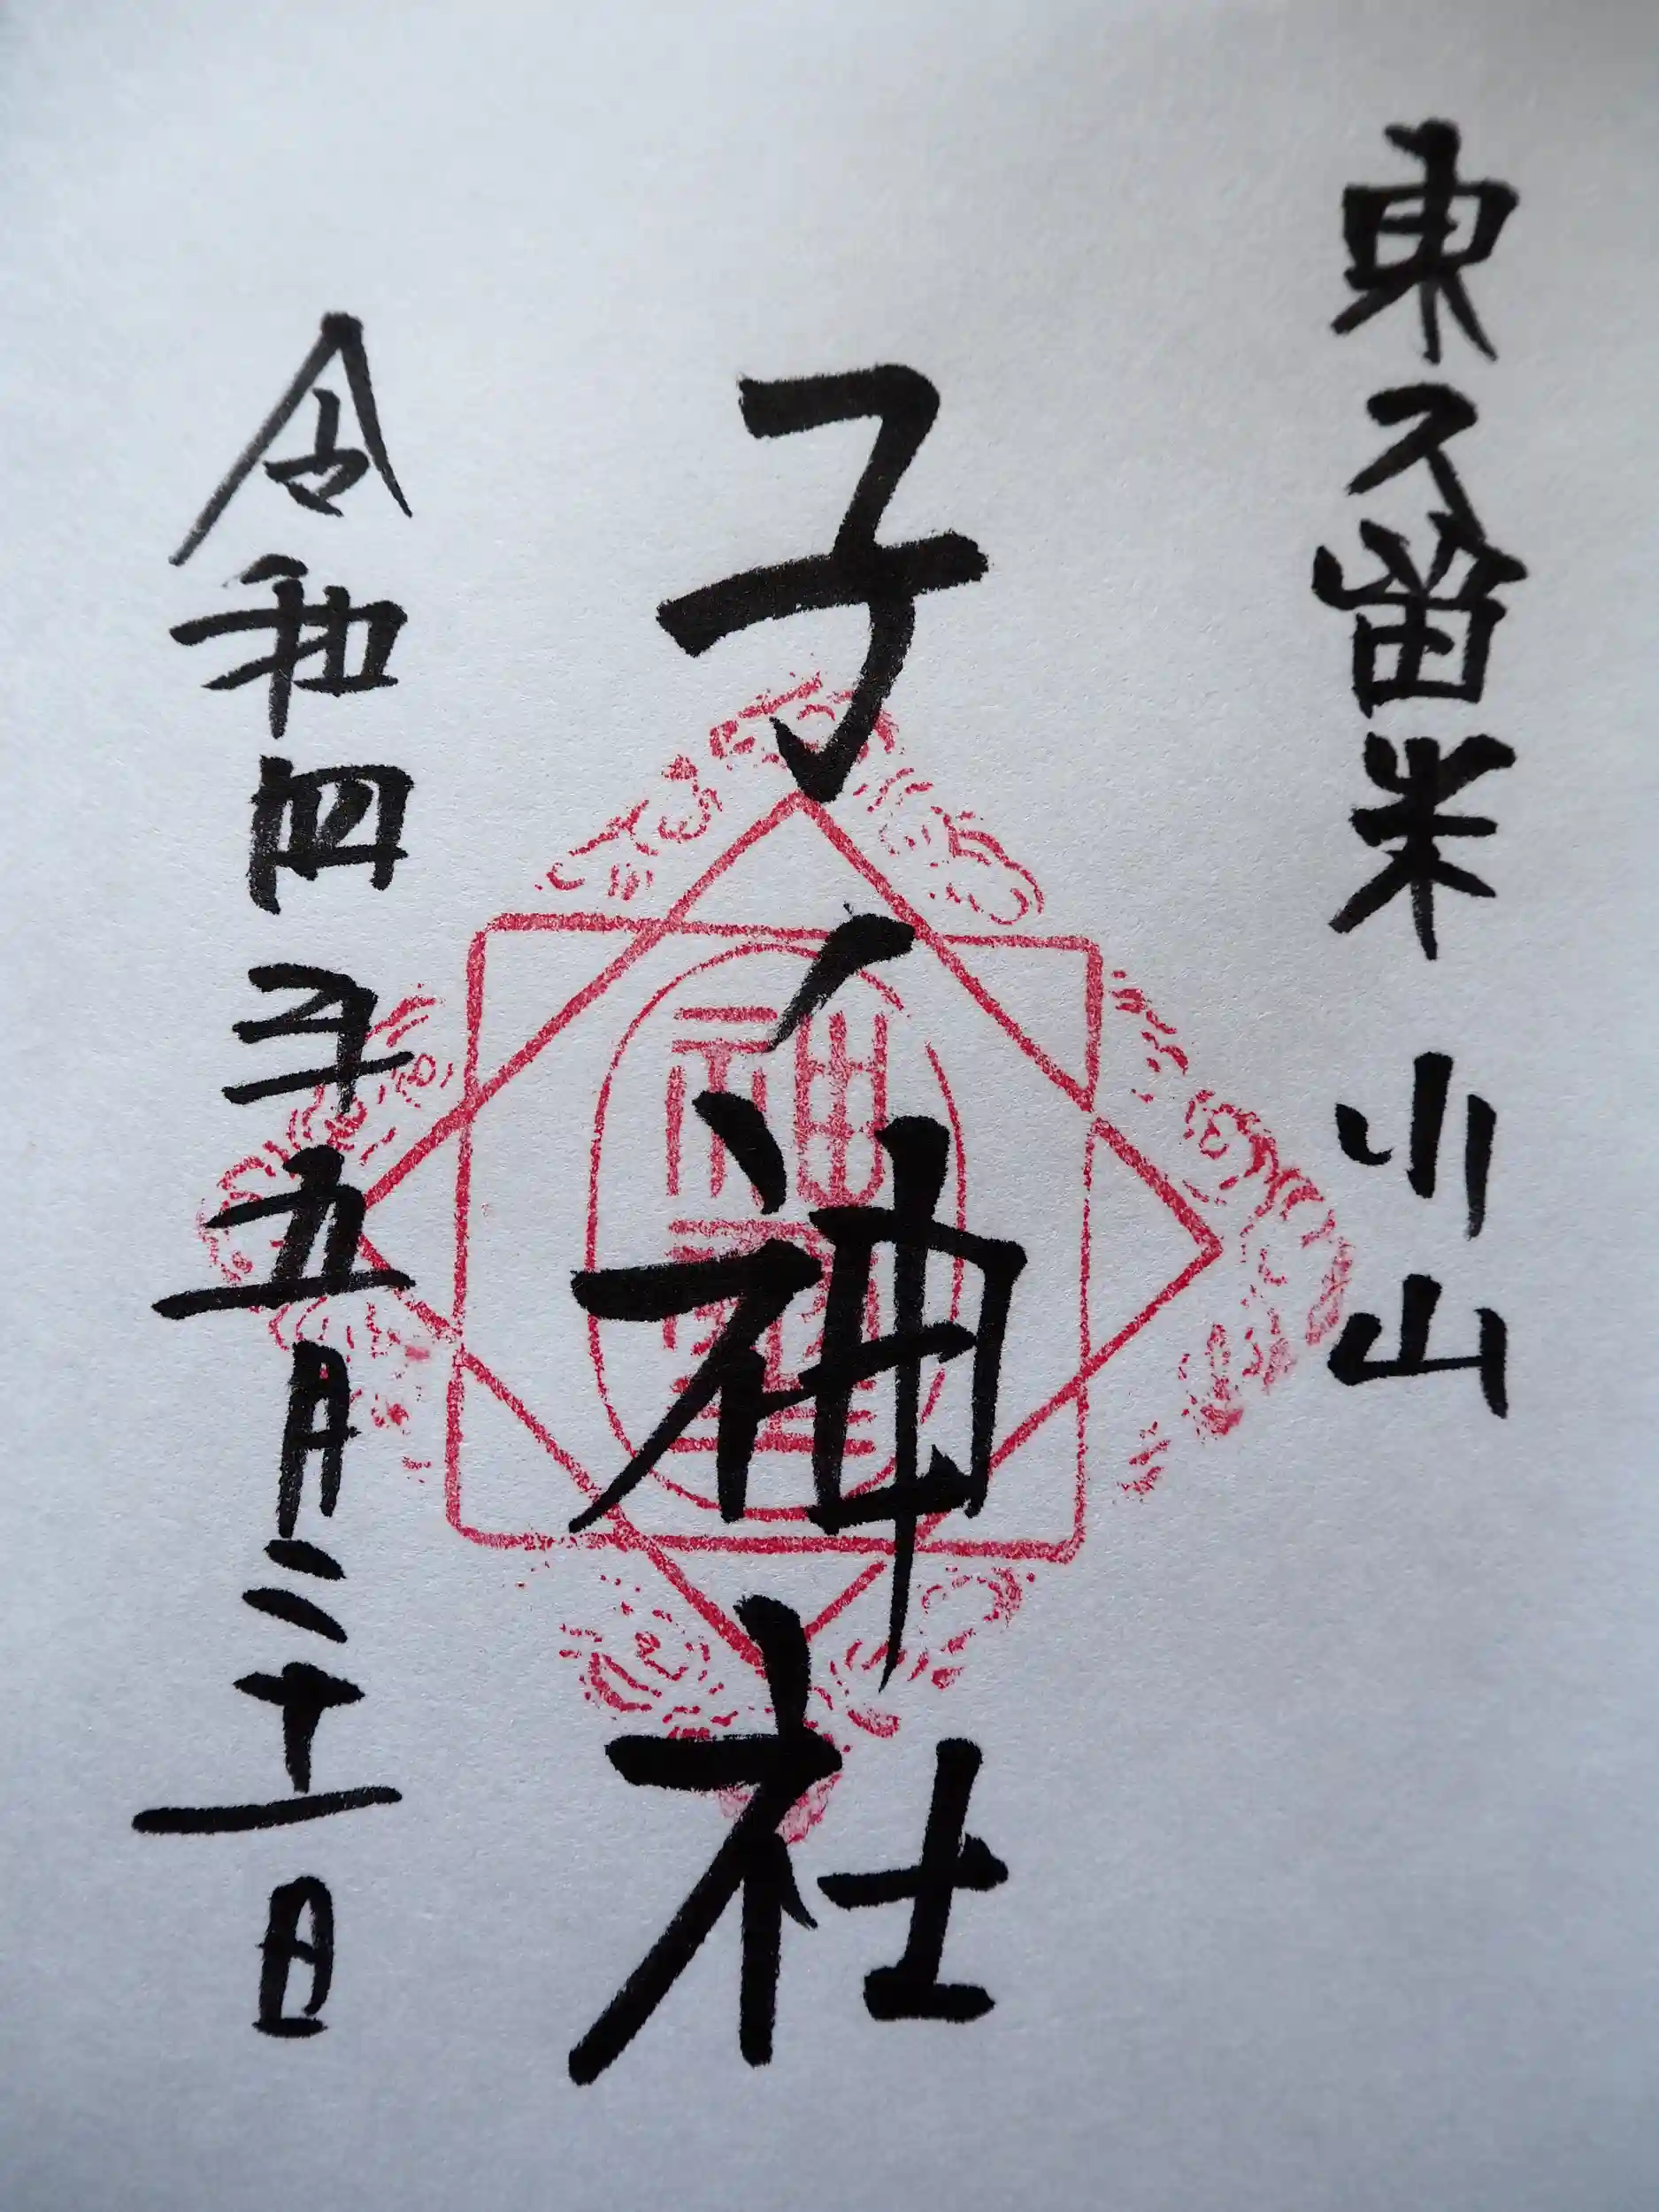 東久留米 小山
子ノ神社
令和四年五月二十一日
神社